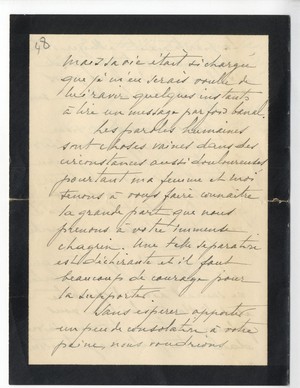 48
mais sa vie était si chargée
que je m'en serais voulu de
lui ravir quelques instants
à lire un message parfois banal.
Les paroles humaines
sont choses vaines dans des
circonstances aussi douloureuses
pourtant ma femme et moi
tenons à vous faire connaître
la grande part que nous
prenons à votre immense
chagrin. Une telle separation
est déchirante et il faut
beaucoup de courage pour
la supporter.
Sans espérer apporter
un peu de consolation à votre
peine, nous voudrions